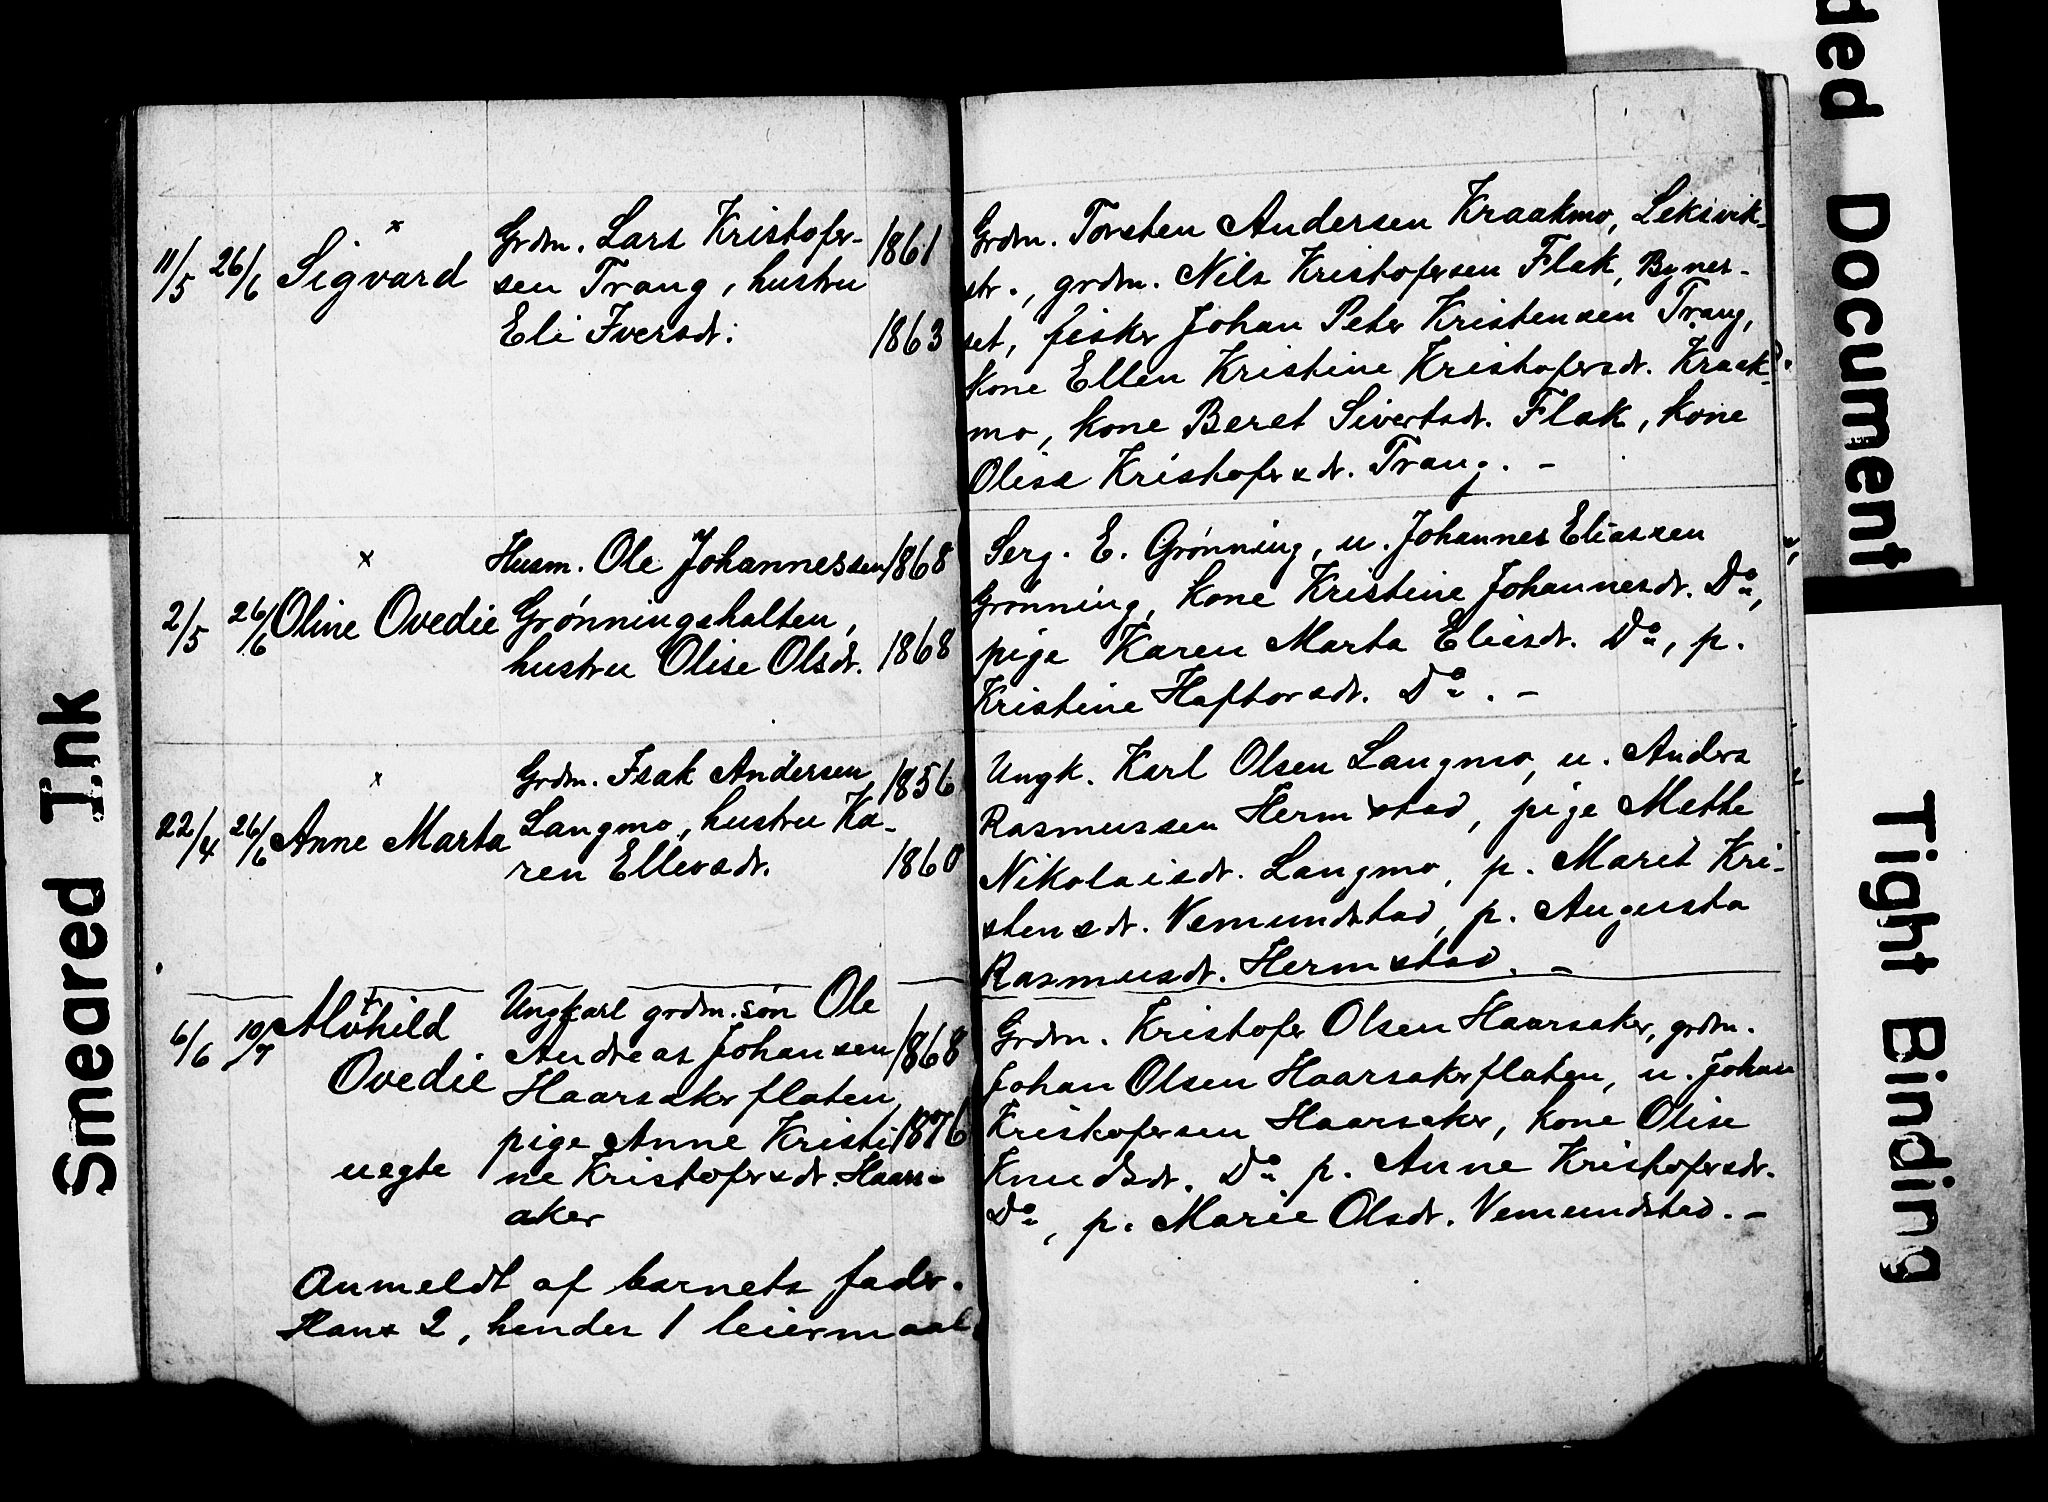 11/5 26/6 Sigvard × Grdm. Lars Kristofer- 1861
sen Trang, hustru
Eli Iversdt. 1863
Grdm. Torsten Andersen Kraakmo, Leksvik-
str., grdm. Nils Kristofersen Flak, Bynes-
set, fisker Johan Peter Kristensen Trang,
kone Ellen Kristine Kristofersdt. Kraak-
mo, kone Beret Sivertsdt. Flak, kone
Olise Kristofersdt. Trang. –
× Husm. Ole Johannessen 1868
2/5 26/6 Oline Ovedie Grønningshalten,
hustru Olise Olsdt. 1868
Serg. E. Grønning, u. Johannes Eliassen
Grønning, kone Kristine Johannesdt. Do,
pige Karen Marta Eliasdt. Do, p.
Kristine Haftorsdt. Do. –
× Grdm. Isak Andersen 1856
22/4 26/6 Anne Marta Langmo, hustru Ka-
ren Ellevsdt. 1860
Ungk. Karl Olsen Langmo, u. Anders
Rasmussen Hermstad, pige Mette
Nikolaisdt. Langmo, p. Marit Kri-
stensdt. Vemundstad, p. Augusta
Rasmusdt. Hermstad. –
6/6 10/7 Alvhild Ungkarl grdm.søn Ole
Ovedie Andreas Johansen 1868
Haarsakerflaten,
pige Anne Kristi- 1876
uegte ne Kristofersdt. Haars-
aker
Anmeldt af barnets fader.
Hans 2, hendes 1 leiermaal.
Grdm. Kristofer Olsen Haarsaker, grdm.
Johan Olsen Haarsakerflaten, u. Johan
Kristofersen Haarsaker, kone Olise
Knudsdt. Do p. Anne Kristofersdt.
Do, p. Marie Olsdt. Vemundstad. –
Smeared Ink
ded Document
Tight Binding